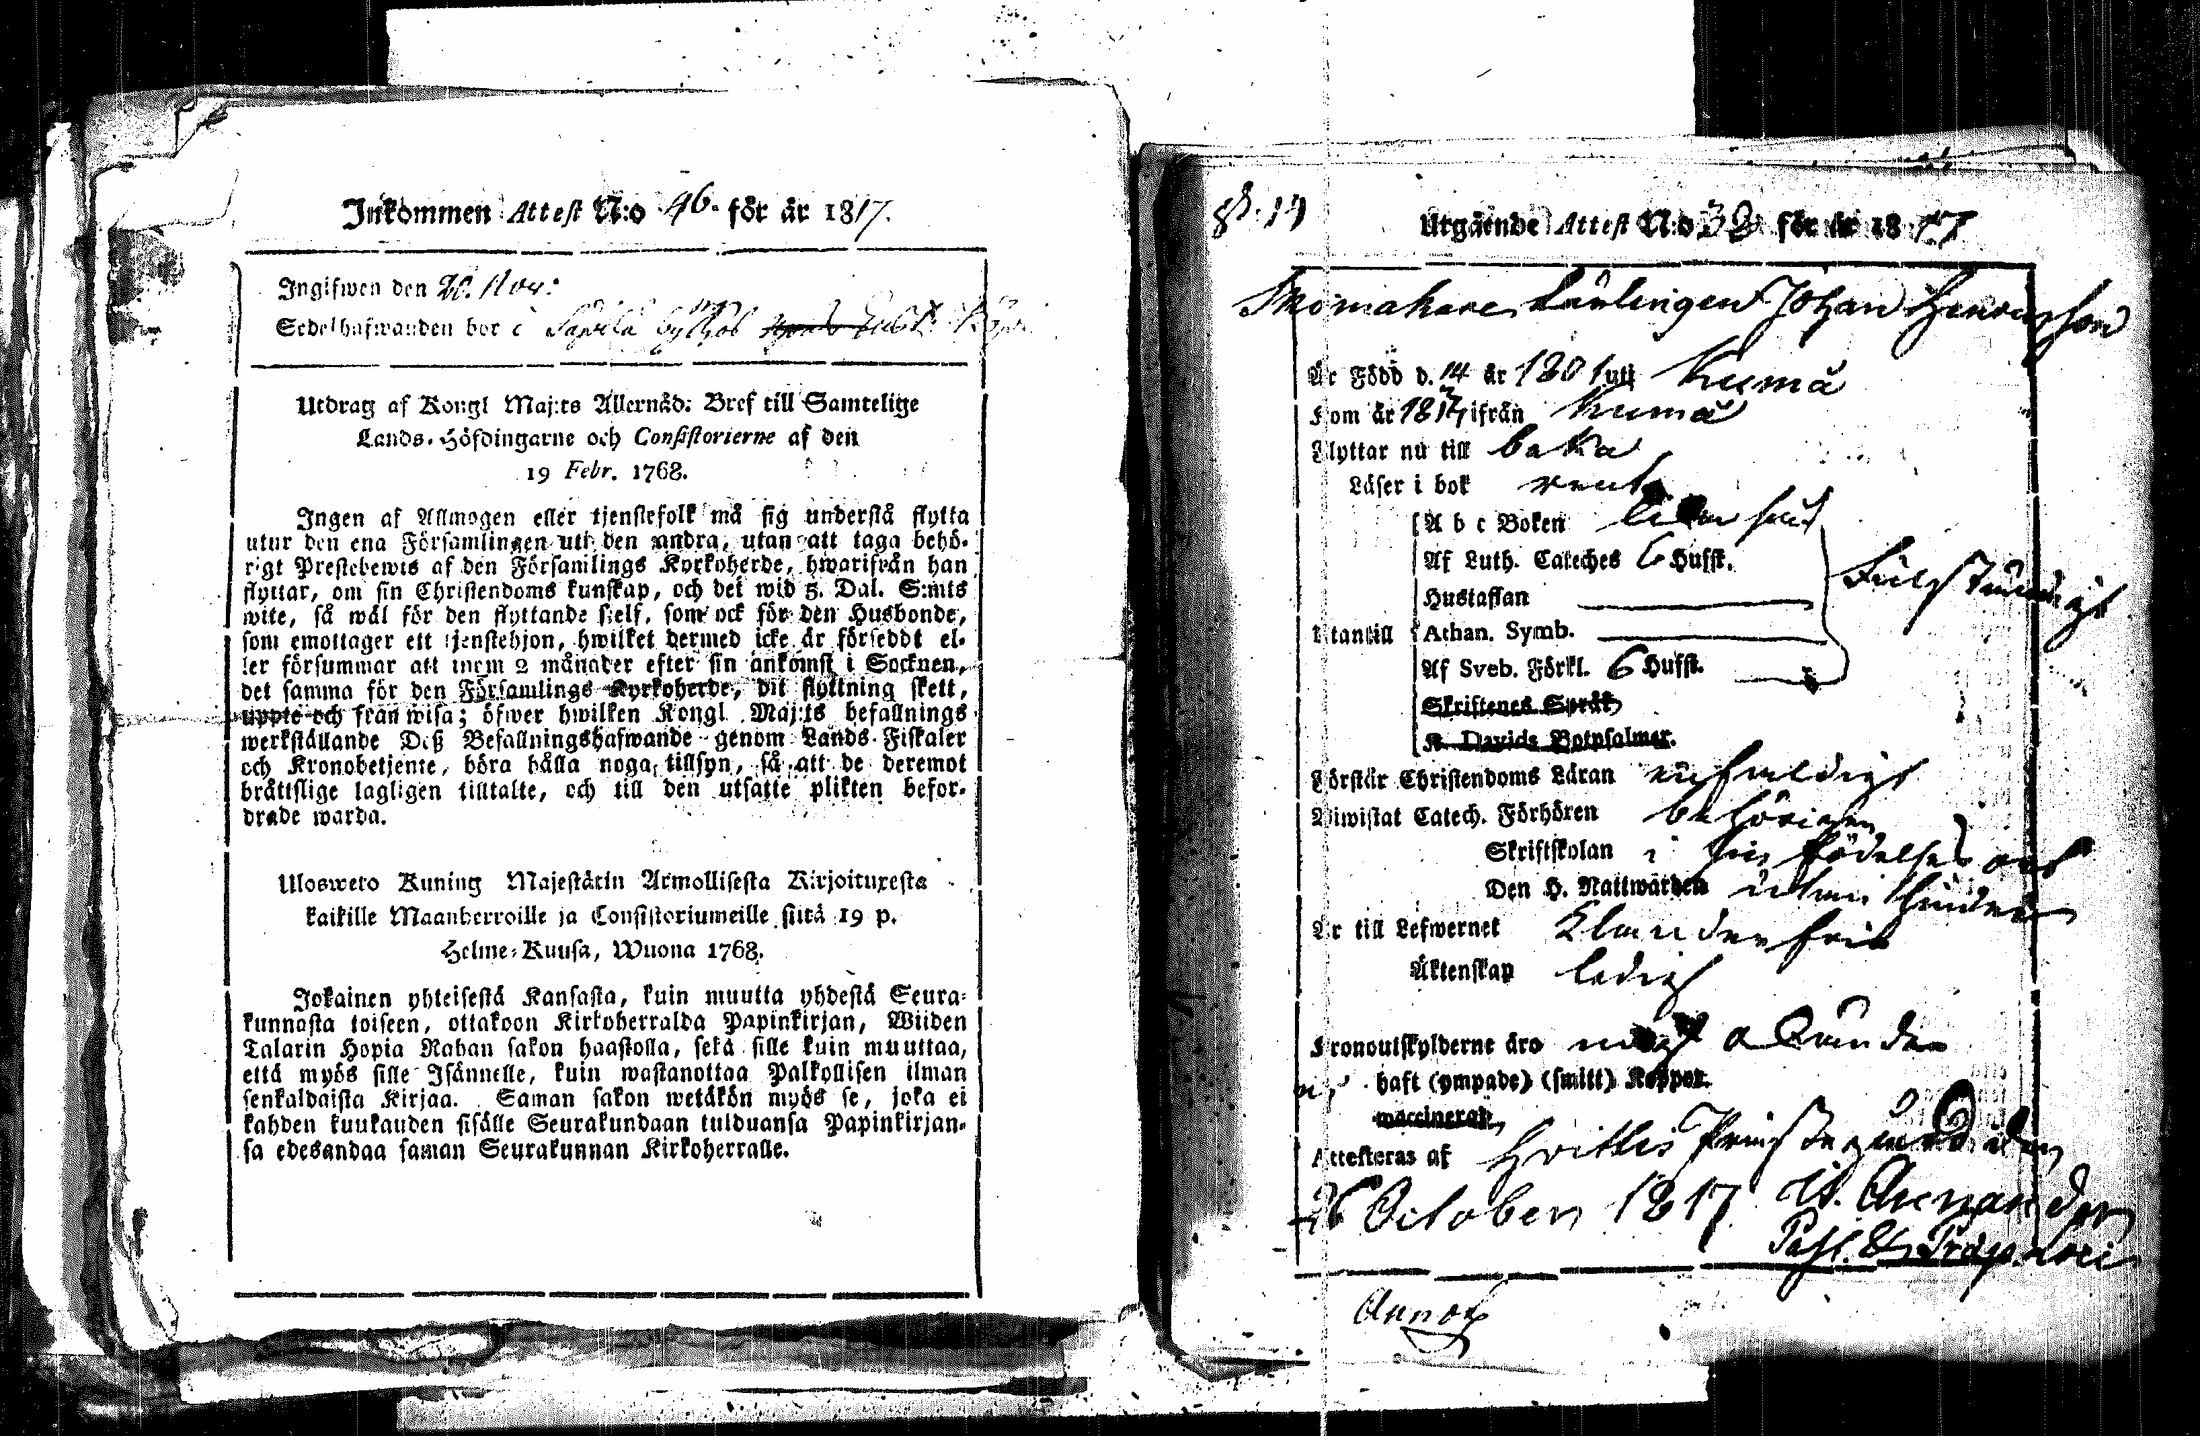 Inkommen Attest N:o 46. för år 1817.
Ingifwen den 20. Nov:
Sedelhafwanden bor i
Utdrag af Kongl Maj:ts Allernåd: Bref till Samtelige
Lands-Höfdingarne och Consistorierne af den
19 Febr. 1768.
Ingen af Allmogen eller tjenstefolk må sig understå flytta
utur den ena Församlingen uti den andra, utan att taga behö-
rigt Prestebewis af den Församlings Kyrkoherde, hwarifrån han
flyttar, om sin Christendoms kunskap, och det wid 5. Dal. S:mts
wite, så wäl för den flyttande sielf, som ock för den Husbonde,
som emottager ett tjenstehjon, hwilket dermed icke är försedt el-
ler försummar att inom 2 månader efter sin ankomst i Socknen,
det samma för den Församlings Kyrkoherde, dit flyttning skett,
uppte och från wisa; öfwer hwilken Kongl Maj:ts befallnings
werkställande Deß Befallningshafwande genom Lands-Fiskaler
och Kronobetjente, böra hålla noga tillsyn, så att de deremot
bråttslige lagligen tilltalte, och till den utsatte plikten befor-
drade warda.
Ulosweto Kuning Majestätin Armollisesta Kirjoituxesta
kaikille Maanherroille ja Consistoriumeille siitä 19 p.
Helme-Kuusa, Wuona 1768.
Jokainen yhteisestä Kansasta, kuin muutta yhdestä Seura-
kunnasta toiseen, ottakoon Kirkoherralda Papinkirjan, Wiiden
Talarin Hopia Rahan sakon haastolla, sekä sille kuin muuttaa,
että myös sille Isännelle, kuin wastanottaa Palkollisen ilman
senkaldaista Kirjaa. Saman sakon wetäkön myös se, joka ei
kahden kuukauden sisälle Seurakundaan tulduansa Papinkirjan-
sa edesandaa saman Seurakunnan Kirkoherralle.
Utgående Attest N:o 32 för år 1817
Skomakare Lärlingen Johan Henricsson
Är Född d. 14 år 1801 uti Kumå
Kom år 1817 ifrån Kumå
Flyttar nu till baka
Läser i bok rent
A b c Boken
Af Luth. Cateches 6 Hufst.
Hustaflan
Fulständigt
Utantill Athan. Symb.
Af Sveb. Förkl. 6 Hufst.
Skriftenes Språk
K. Davids Botpsalmer.
Förstår Christendoms Läran enfaldigt
Biwistat Catech. Förhören behörigen
Skriftskolan i sin födelse ort
Den H. Nattwarden utan hinder
Är till Lefwernet Klanderfrie
Äktenskap ledig
Kronoutskylderne äro
haft (ympade) (smitt) Koppor.
waccinerat,
Attesteras af Hvittis Prestegård den
26 October 1817
Past. & Præp.
Annot